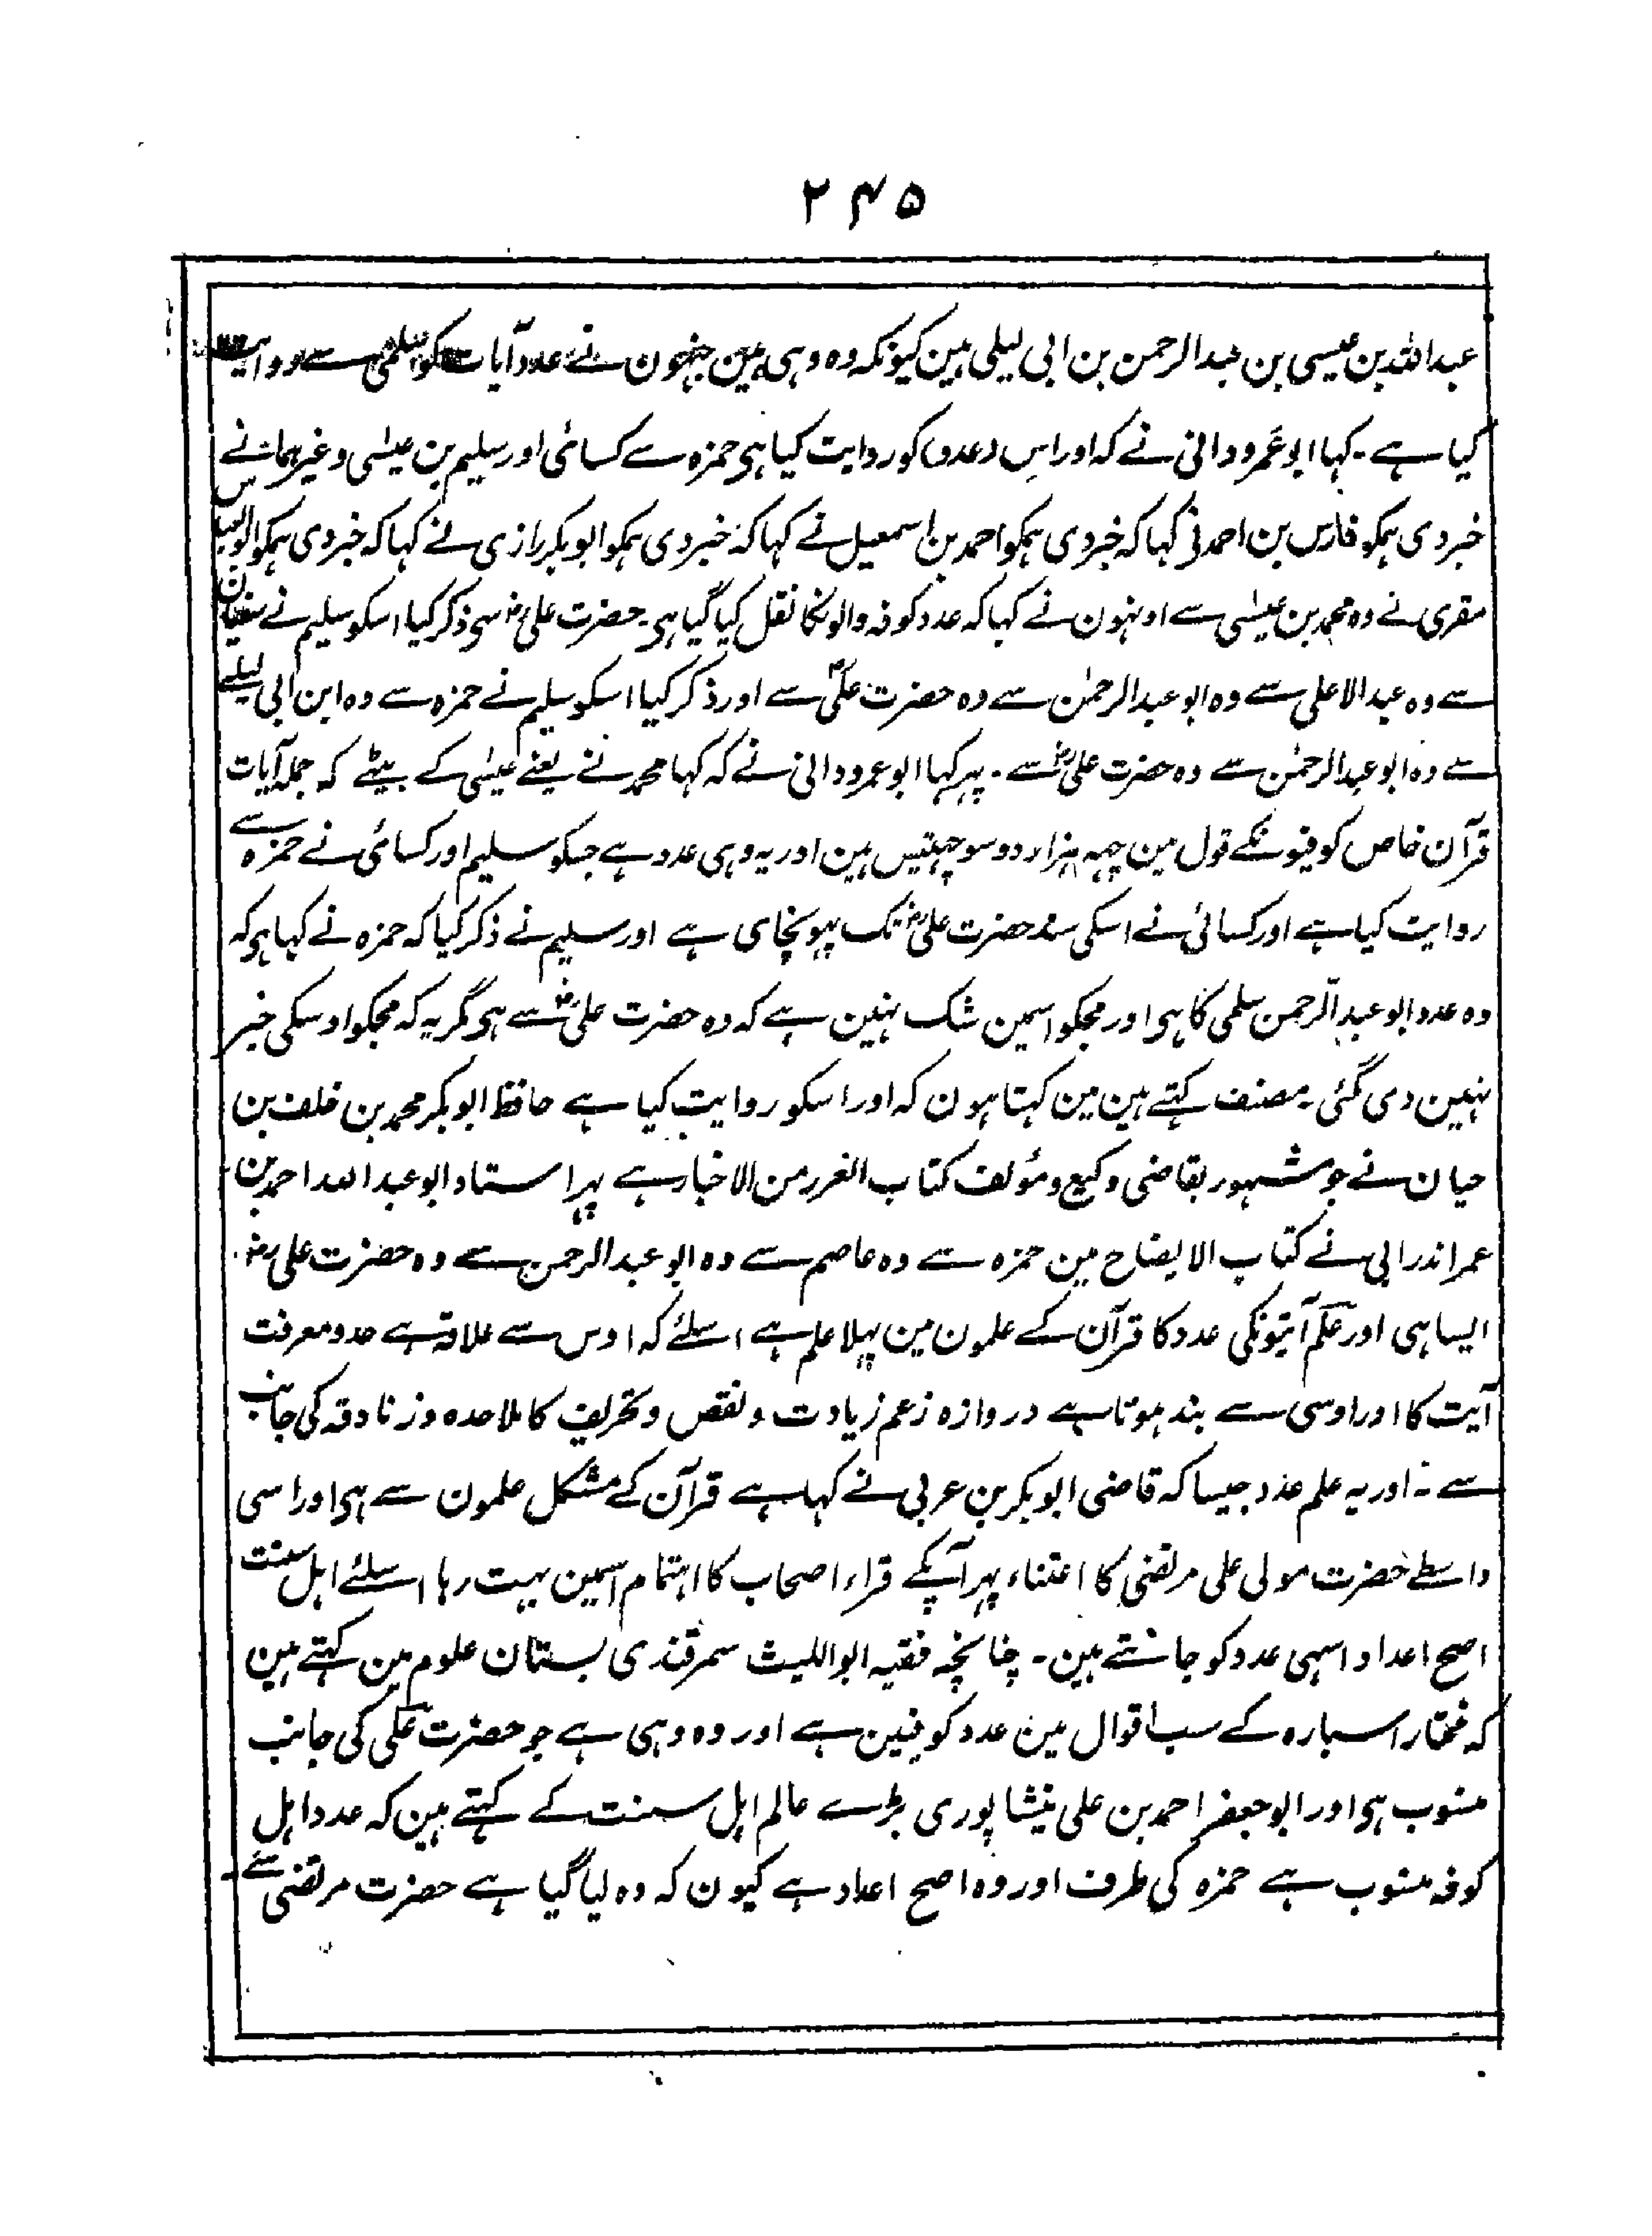 ۲۴۵
عبداللہ بن عیسی بن عبدالرحمن بن ابی لیلی ہین کیونکہ وہ وہی ہین جنہون نے عدد آیات کو سلمی سے روایت
کیا ہے۔ کہا ابو عمرو دانی نے کہ اور اس (عدد) کو روایت کیا ہی حمزہ سے کسائی اور سلیم بن عیسٰی وغیرہمانے
خبر دی ہمکو فارس بن احمد نی کہا کہ خبر دی ہمکو احمد بن اسمعیل نے کہا کہ خبر دی ہمکو ابو بکر رازی نے کہا کہ خبر دی ہمکو ابو العباس
مقری نے وہ محمد بن عیسٰی سے اونہون نے کہا کہ عدد کوفہ والونکا نقل کیا گیا ہی۔ حضرت علیؓ سی ذکر کیا اسکو سلیم نے سفیان
سے وہ عبدالاعلی سے وہ ابو عبدالرحمٰن سے وہ حضرت علیؑ سے اور ذکر کیا اسکو سلیم نے حمزہ سے وہ ابن ابی لیلے
سے وہ ابو عبدالرحمٰن سے وہ حضرت علیؓ سے۔ پہر کہا ابو عمرو دانی نے کہ کہا محمد نے یعنے عیسٰی کے بیٹے کہ جملہ آیات
قرآن خاص کوفیونکے قول مین چہہ ہزار دو سو چہتیس ہین اور یہ وہی عدد ہے جسکو سلیم اور کسائی نے حمزہ سے
روایت کیا ہے اور کسائی نے اسکی سند حضرت علیؓ تک پہونچای ہے اور سلیم نے ذکر کیا کہ حمزہ نے کہا ہی کہ
وہ عدد ابو عبدالرحمن سلمی کا ہی اور مجکو اسمین شک نہین ہے کہ وہ حضرت علیؓ سے ہی مگر یہ کہ مجکو اوسکی خبر
نہین دی گئی۔ مصنف کہتے ہین مین کہتا ہون کہ اور اسکو روایت کیا ہے حافظ ابو بکر محمد بن خلف بن
حیان نے جو مشہور بقاضی وکیع و مؤلف کتاب الغرر من الاخبار ہے پہر استاد ابو عبد اللہ احمد بن
عمر اندرابی نے کتاب الایضاح مین حمزہ سے وہ عاصم سے وہ ابو عبدالرحمن سے وہ حضرت علیؓ۔
ایسا ہی اور علم آیتونکی عدد کا قرآن کے علمون مین پہلا علم ہے اسلئے کہ اوس سے علاقہ ہے حد و معرفت
آیت کا اور اوسی سے بند ہوتا ہے دروازہ زعم زیادت و نقص و تحریف کا ملاحدہ و زنادقہ کی جانب
سے۔ اور یہ علم عدد جیسا کہ قاضی ابو بکر بن عربی نے کہا ہے قرآن کے مشکل علمون سے ہی اور اسی
واسطے حضرت مولی علی مرتضی کا اعتناء پہر آپکے قراء اصحاب کا اہتمام اسمین بہت رہا اسلئے اہل سنت
اصح اعداد اسہی عدد کو جانتے ہین۔ چنانچہ فقیہ ابو اللیث سمرقندی بستان علوم مین کہتے ہین
کہ مختار اسبارہ کے سب اقوال مین عدد کوفیین ہے اور وہ وہی ہے جو حضرت علی کی جانب
منسوب ہی اور ابو جعفر احمد بن علی نیشاپوری بڑے عالم اہل سنت کے کہتے ہین کہ عدد اہل
کوفہ منسوب ہے حمزہ کی طرف اور وہ اصح اعداد ہے کیون کہ وہ لیا گیا ہے حضرت مرتضی سے۔